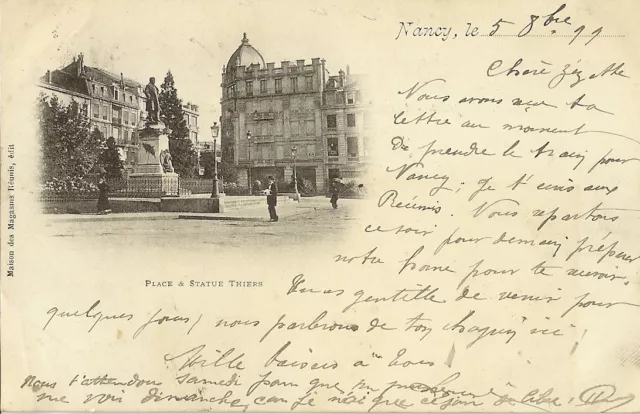 Nancy, le 5 8bre 99
Chère
Nous avons reçu ta
lettre au moment
de prendre le train pour
Nancy; Je t'écris aux
Réunis. Nous repartons
ce soir pour demain préparer
notre home pour te recevoir.
Tu es gentille de venir pour
quelques jours, nous parlerons de ton chagrin ici!
Mille baisers à tous.
Nous t'attendons samedi pour que
me voir dimanche, car je n'ai que ce jour de libre.
PLACE & STATUE THIERS
Maison des Magasins Réunis, édit